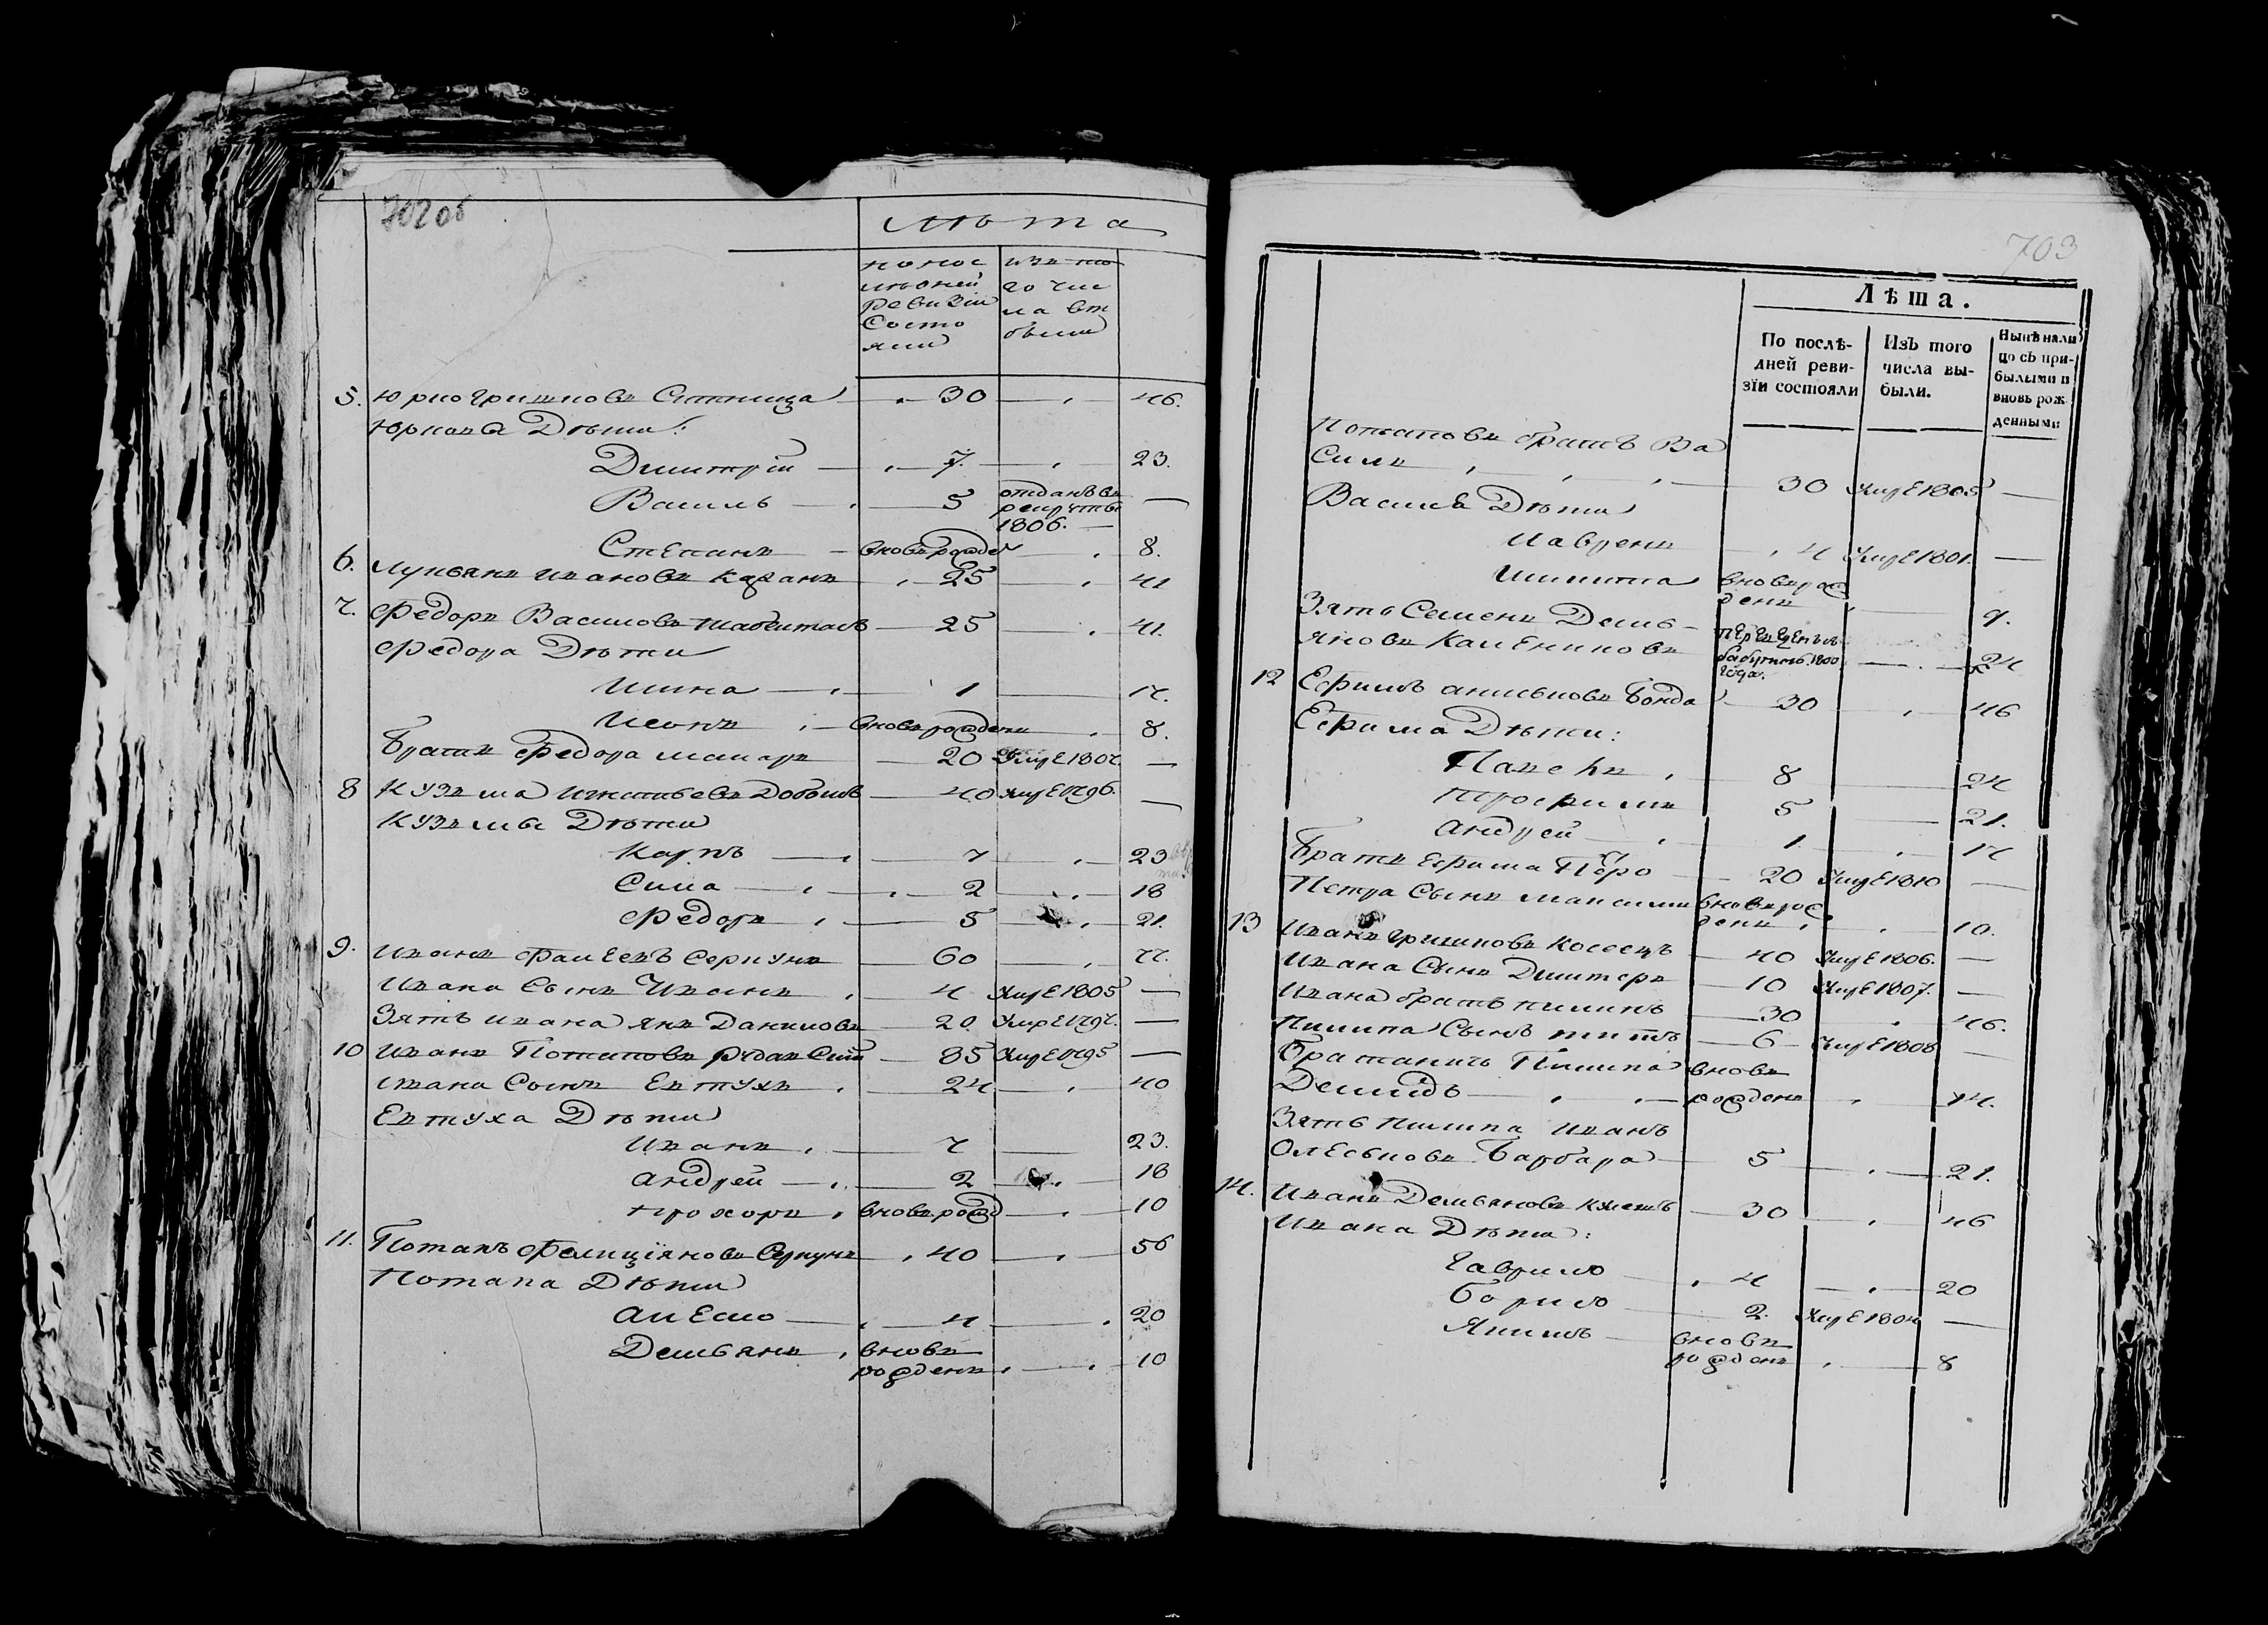 702 об
лѣта
по пос
лѣдней
ревизіи
состо
яли
изъ то
го чис
ла вы
были
5. Юрко Гришковъ Ситница 30 46.
Юркова Дѣти:
Дмитрій 7. 23.
Василь 5 отданъ въ рекруты 1806.
Степанъ вновь рожде 8.
6. Лукьянъ Ивановъ Казанъ 25 41
7. Федоръ Василовъ 25 41.
Федора Дѣти
1 17.
вновь рожденъ 8.
Братъ Федора Макаръ 20 Умре 1807.
8 Кузьма Игнатьевъ 40 Умре 1796.
Кузьмы Дѣти
Карпъ 7 23
Сила 2 18
Федоръ 5 21.
9. Иванъ Серкунъ 60 77.
Ивана Сынъ Иванъ 4 Умре 1805
Зять Ивана Янъ Даниловъ 20 Умре 1797.
10 Иванъ Потаповъ 85 Умре 1795
Ивана Сынъ Евтухъ 24 40
Евтуха Дѣти
Иванъ 7 23.
Андрей 2 18
Прохоръ вновь рожд 10
11. Потапъ Фелиціановъ Серкунъ 40 56
Потапа Дѣти
Алексо 4 20
Демьянъ вновь 10
рожденъ
703
Лѣта.
По послѣ-
дней реви-
зіи состояли
Изъ того
числа вы-
были.
Нынѣ нали
цо съ при-
былыми и
вновь рож
денными
Потаповъ братъ Ва
силь 30 Умре 1805
Василя Дѣти
Лавренъ 4 Умре 1801.
Никита вновь рож
денъ 9.
Зять Семенъ Демь-
яновъ Калениковъ 1800 года. 24
12 Ефимъ Бонда 30 46
Ефима Дѣти:
8 24
Трофимъ 5 21.
Андрей 1 17
Братъ Ефима Петро 20 Умре 1810
Петра Сынъ Максимъ вновь рож
денъ 10.
13 Иванъ Гришковъ 40 Умре 1806.
Ивана Сынъ Дмитеръ 10 Умре 1807.
Ивана братъ Пилипъ 30 46.
Пилипа Сынъ Титъ 6 Умре 1808
Братаничъ Пилипа вновь
Демидъ рожденъ 14.
Зять Пилипа Иванъ
Олеськовъ Барбара 5 21.
14. Иванъ Демьяновъ 30 46
Ивана Дѣти:
Гаврило 4 20
Борисъ 2. Умре 1804
Якимъ вновь
рожденъ 8